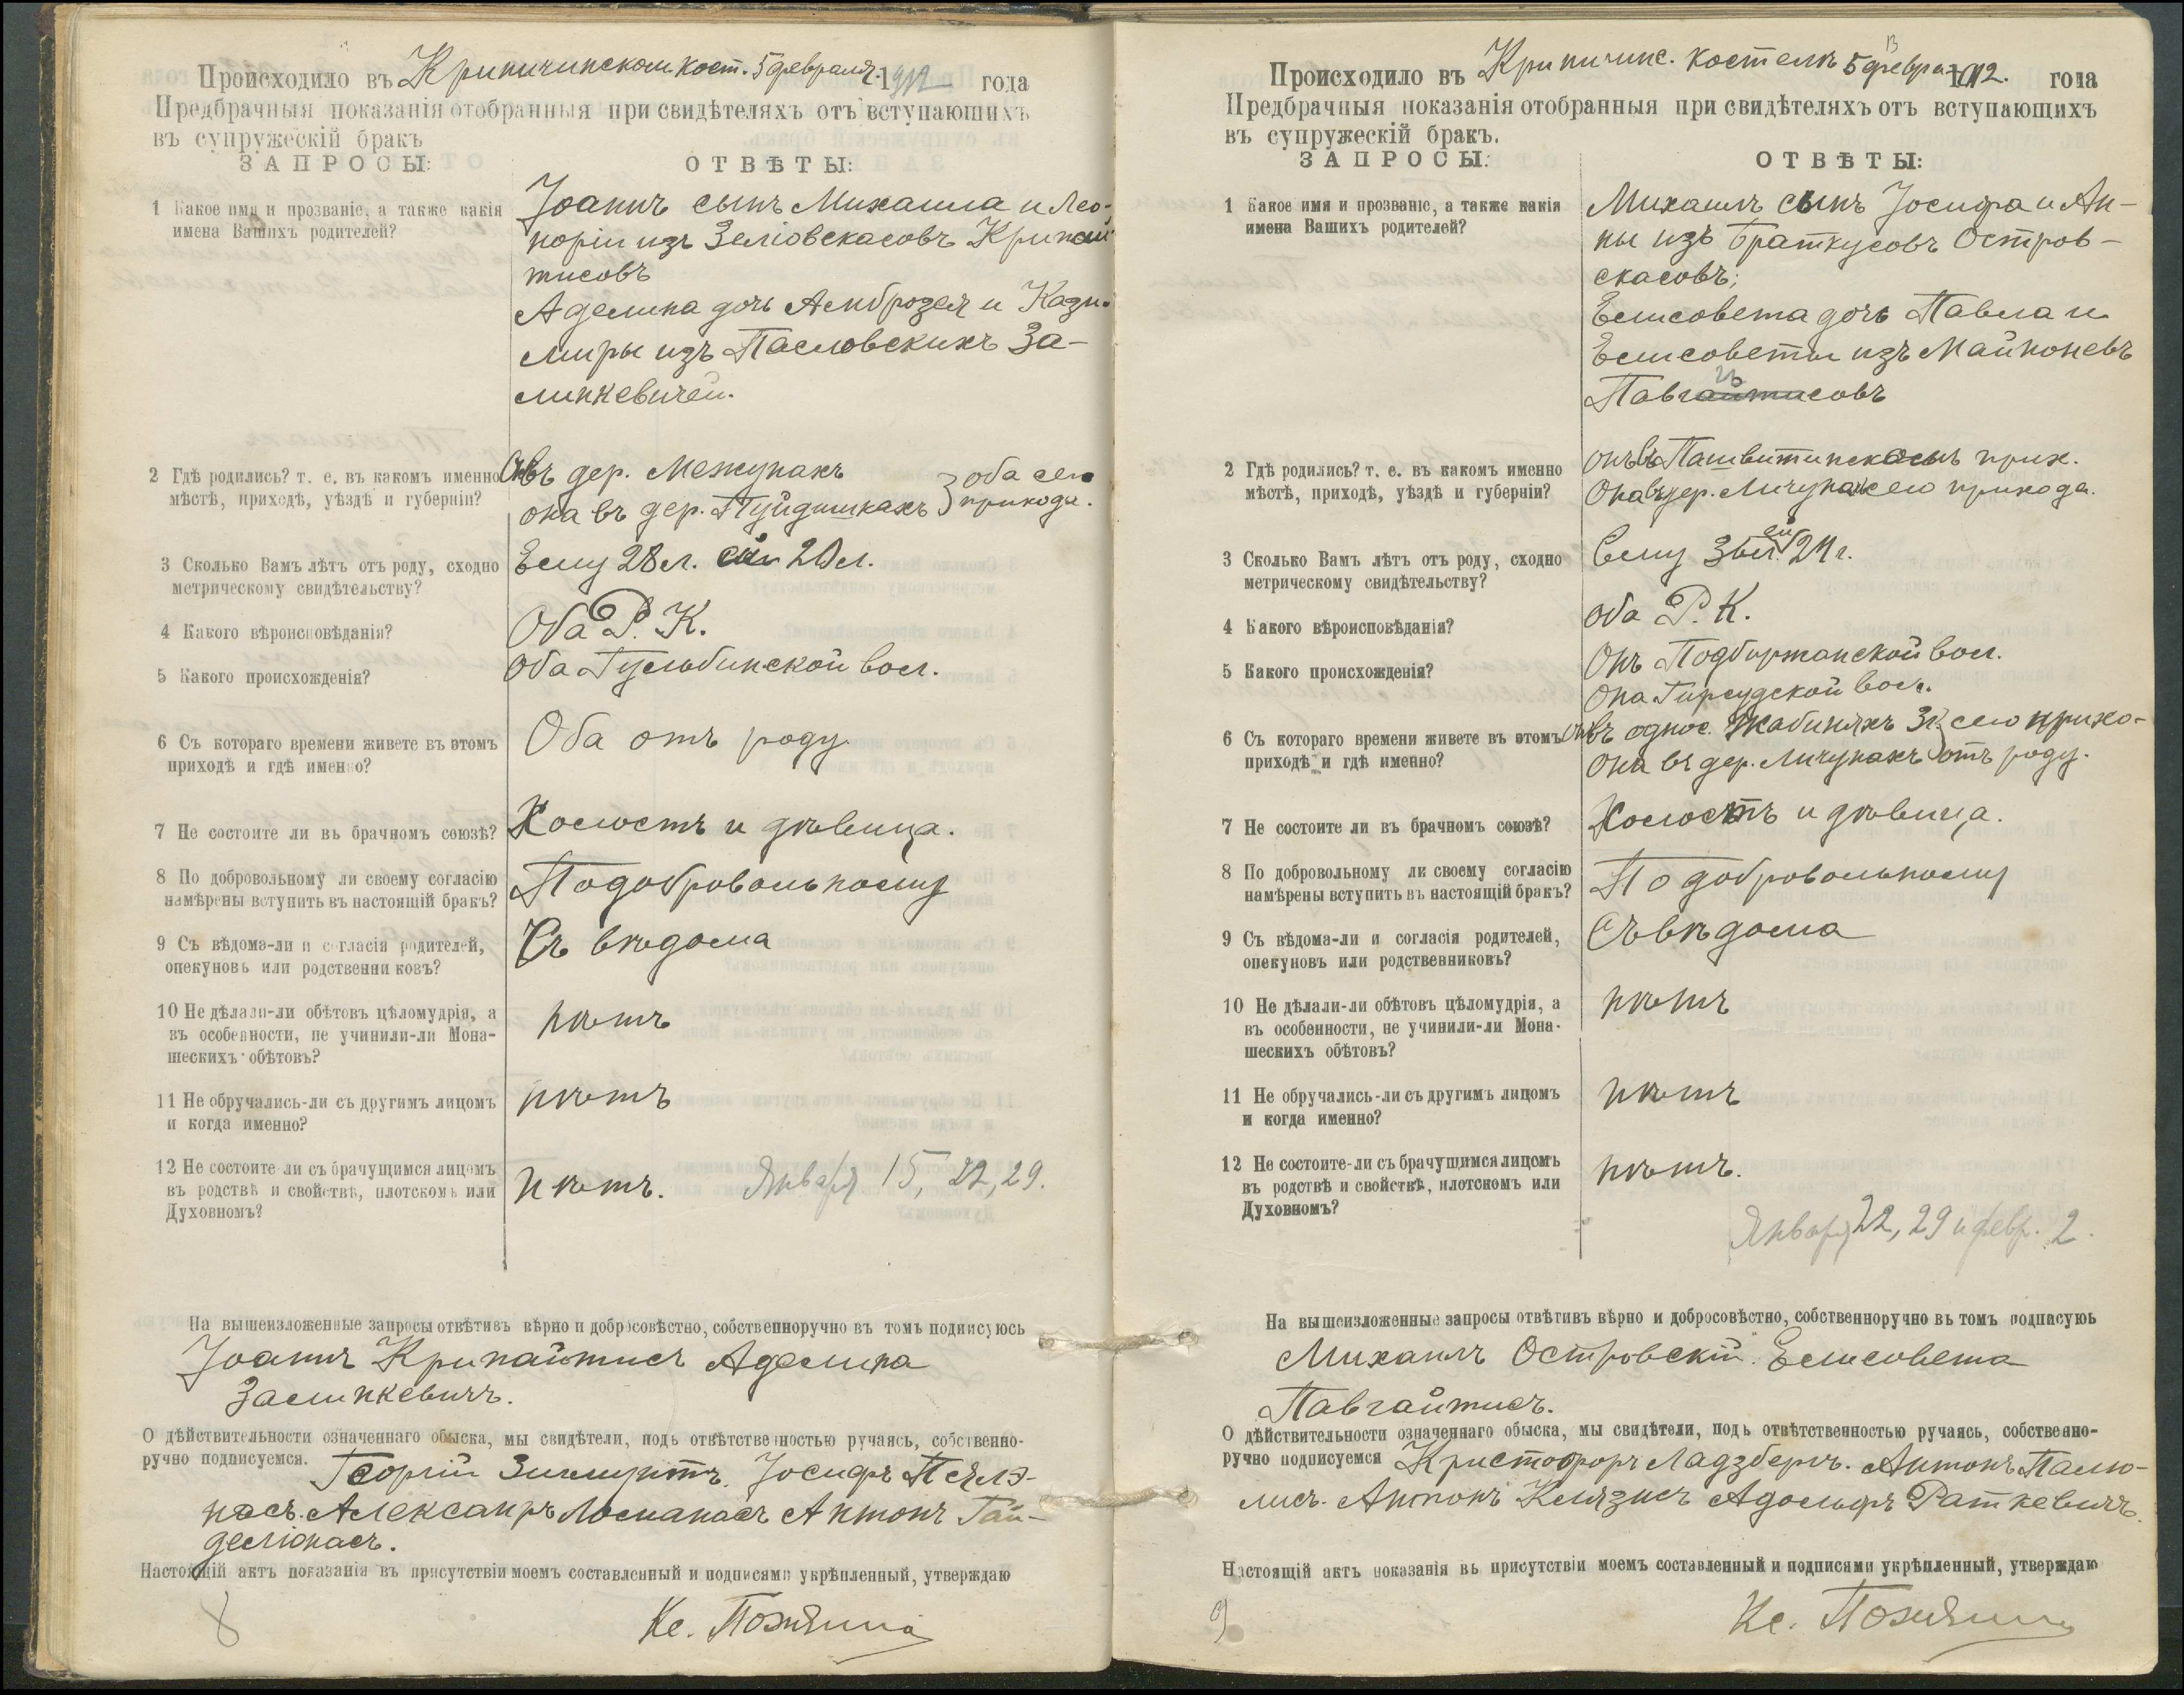 Происходило въ Крипичинском. кост. 5 февраля 1912 года
Предбрачныя показанія отобранныя при свидѣтеляхъ отъ вступающихъ
въ супружескій бракъ
ЗАПРОСЫ: ОТВѢТЫ:
1 Какое имя и прозваніе, а также какія
имена Вашихъ родителей?
Іоаннъ сынъ Михаила и Лео-
норіи изъ
тисовъ
Аделина дочь Амброзея и Кази-
миры изъ Пасловскихъ За-
линкевичей.
2 Гдѣ родились? т. е. въ какомъ именно
мѣстѣ, приходѣ, уѣздѣ и губерніи?
Онъ въ дер. Межунахъ
она въ дер. Пуйдишкахъ } оба сего
прихода.
3 Сколько Вамъ лѣтъ отъ роду, сходно
метрическому свидѣтельству?
Ему 28 л. ей 20 л.
4 Какого вѣроисповѣданія?
Оба Р. К.
5 Какого происхожденія?
Оба Гульбинской вол.
6 Съ котораго времени живете въ этомъ
приходѣ и гдѣ именно?
Оба отъ роду
7 Не состоите ли въ брачномъ союзѣ?
Холостъ и дѣвица.
8 По добровольному ли своему согласію
намѣрены вступить въ настоящій бракъ?
По добровольному
9 Съ вѣдома-ли и согласія родителей,
опекуновъ или родственниковъ?
Съ вѣдома
10 Не дѣлали-ли обѣтовъ цѣломудрія, а
въ особенности, не учинили-ли Мона-
шескихъ обѣтовъ?
нѣтъ
11 Не обручались-ли съ другимъ лицомъ
и когда именно?
нѣтъ
12 Не состоите ли съ брачущимся лицомъ
въ родствѣ и свойствѣ, плотскомъ или
Духовномъ?
нѣтъ. Января 15, 22, 29.
На вышеизложенные запросы отвѣтивъ вѣрно и добросовѣстно, собственноручно въ томъ подписуюсь
Іоаннъ Крипайтисъ Аделина
Залинкевичъ.
О дѣйствительности означеннаго обыска, мы свидѣтели, подъ отвѣтственностью ручаясь, собственно-
ручно подписуемся. Георгій Зигмунтъ. Іосифъ Пеялэ-
насъ. Александръ Антонъ Гай-
деліонасъ.
Настоящій актъ показанія въ присутствіи моемъ составленный и подписями укрѣпленный, утверждаю
8 Кс. Пожяила
Происходило въ Крипичинс. костелѣ 5 февра 1912. года
Предбрачныя показанія отобранныя при свидѣтеляхъ отъ вступающихъ
въ супружескій бракъ.
ЗАПРОСЫ: ОТВѢТЫ:
1 Какое имя и прозваніе, а также какія
имена Вашихъ родителей?
Михаилъ сынъ Іосифа и Ан-
ны изъ Браткусовъ Остров-
скасовъ;
Елисовета дочь Павла и
Елисоветы изъ Майноневъ
2 Гдѣ родились? т. е. въ какомъ именно
мѣстѣ, приходѣ, уѣздѣ и губерніи?
Онъ въ Пашвитинскомъ прих.
Она въ дер. Личунахъ сего прихода.
3 Сколько Вамъ лѣтъ отъ роду, сходно
метрическому свидѣтельству?
Ему 36 л. ей 24 г.
4 Какого вѣроисповѣданія?
Оба Р. К.
5 Какого происхожденія?
Онъ Подбиржанской вол.
Она Гирсудской вол.
6 Съ котораго времени живете въ этомъ
приходѣ и гдѣ именно?
Онъ въ однос. Жабиняхъ 3 г. сего прихо-
Она въ дер. Личунахъ отъ роду.
7 Не состоите ли въ брачномъ союзѣ?
Холостъ и дѣвица.
8 По добровольному ли своему согласію
намѣрены вступить въ настоящій бракъ?
По добровольному
9 Съ вѣдома-ли и согласія родителей,
опекуновъ или родственниковъ?
Съ вѣдома
10 Не дѣлали-ли обѣтовъ цѣломудрія, а
въ особенности, не учинили-ли Мона-
шескихъ обѣтовъ?
нѣтъ
11 Не обручались-ли съ другимъ лицомъ
и когда именно?
нѣтъ
12 Не состоите-ли съ брачущимся лицомъ
въ родствѣ и свойствѣ, плотскомъ или
Духовномъ?
нѣтъ.
Января 22, 29 и февр. 2.
На вышеизложенные запросы отвѣтивъ вѣрно и добросовѣстно, собственноручно въ томъ подписуюь
Михаилъ Островскій. Елисовета
Павгайтисъ.
О дѣйствительности означеннаго обыска, мы свидѣтели, подъ отвѣтственностью ручаясь, собственно-
ручно подписуемся Кристофоръ Ладзбергъ. Антонъ Палю-
лисъ. Антонъ Клязисъ Адольфъ Раткевичъ.
Настоящій актъ показанія въ присутствіи моемъ составленный и подписями укрѣпленный, утверждаю
9 Кс. Пожяила